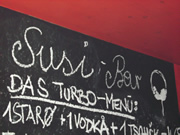 Susi-Bar
DAS TURBO-MENÜ:
1 STARO + 1 VODKA + 1